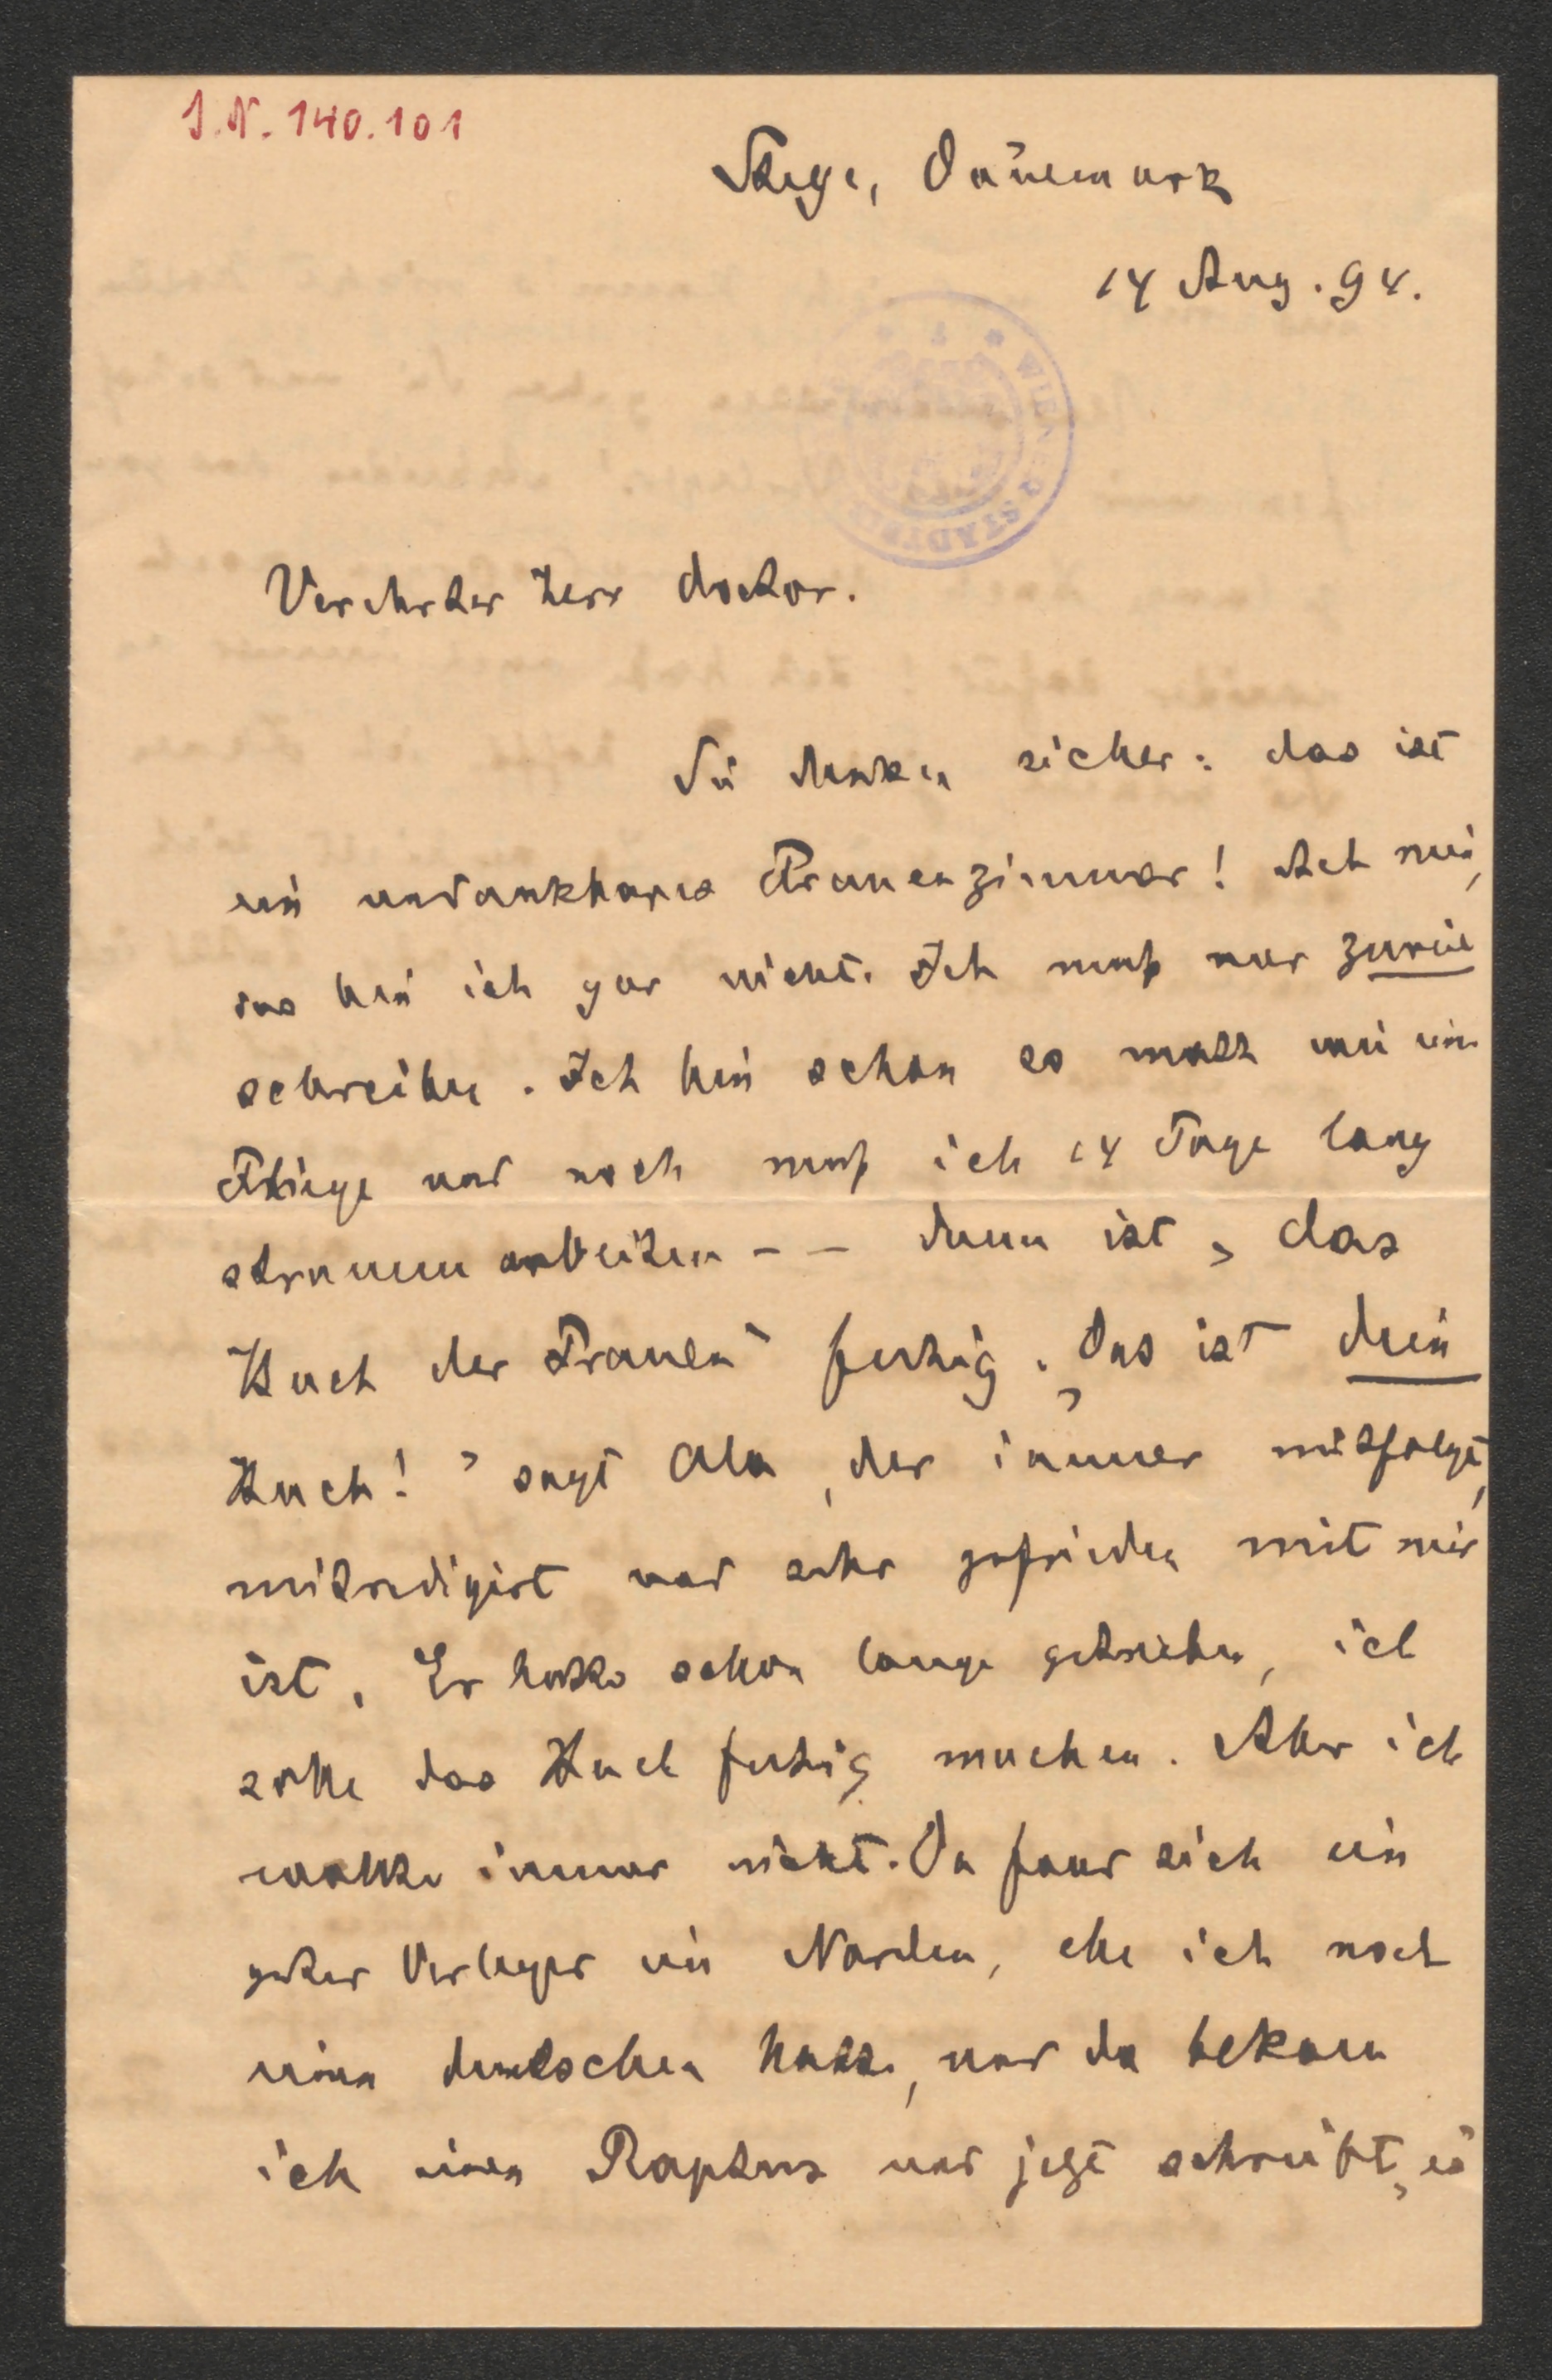 J.N. 140.101
Stege, Dänemark
14 Aug. 94.
WIENER STADTBIB
Verehrter Herr doctor.
Sie denken sicher: das ist
ein undankbares Frauenzimmer! Ach nein,
das bin ich gar nicht. Ich muß nur zuviel
schreiben. Ich bin schon so matt wie eine
Fliege und noch muß ich 14 Tage lang
stramm arbeiten – – dann ist „das
Buch der Frauen“ fertig. „Das ist dein
Buch!“ sagt Ola, der immer mitfolgt,
mitredigirt und sehr zufrieden mit mir
ist. Er hatte schon lange getrieben, ich
solle das Buch fertig machen. Aber ich
wollte immer nicht. Da fand sich ein
guter Verleger im Norden, ehe ich noch
einen deutschen hatte, und da bekam
ich einen Raptus und jetzt schreibt „es“